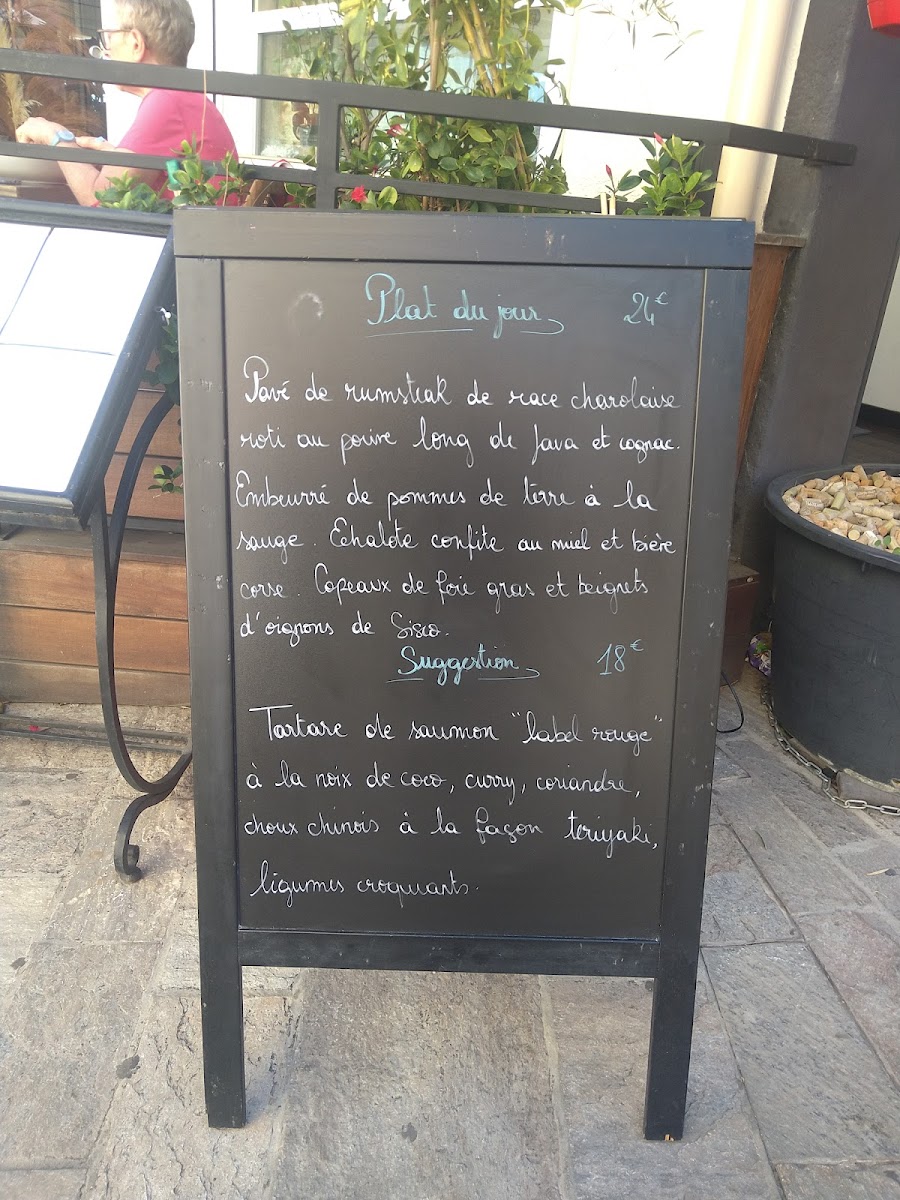 Plat du jour 24€
Pavé de rumsteak de race charolaise
roti au poivre long de Java et cognac.
Embeurré de pommes de terre à la
sauge. Echalote confite au miel et bière
corse. Copeaux de foie gras et beignets
d'oignons de Sisco.
Suggestion 18€
Tartare de saumon "label rouge"
à la noix de coco, curry, coriandre,
choux chinois à la façon teriyaki,
légumes croquants.